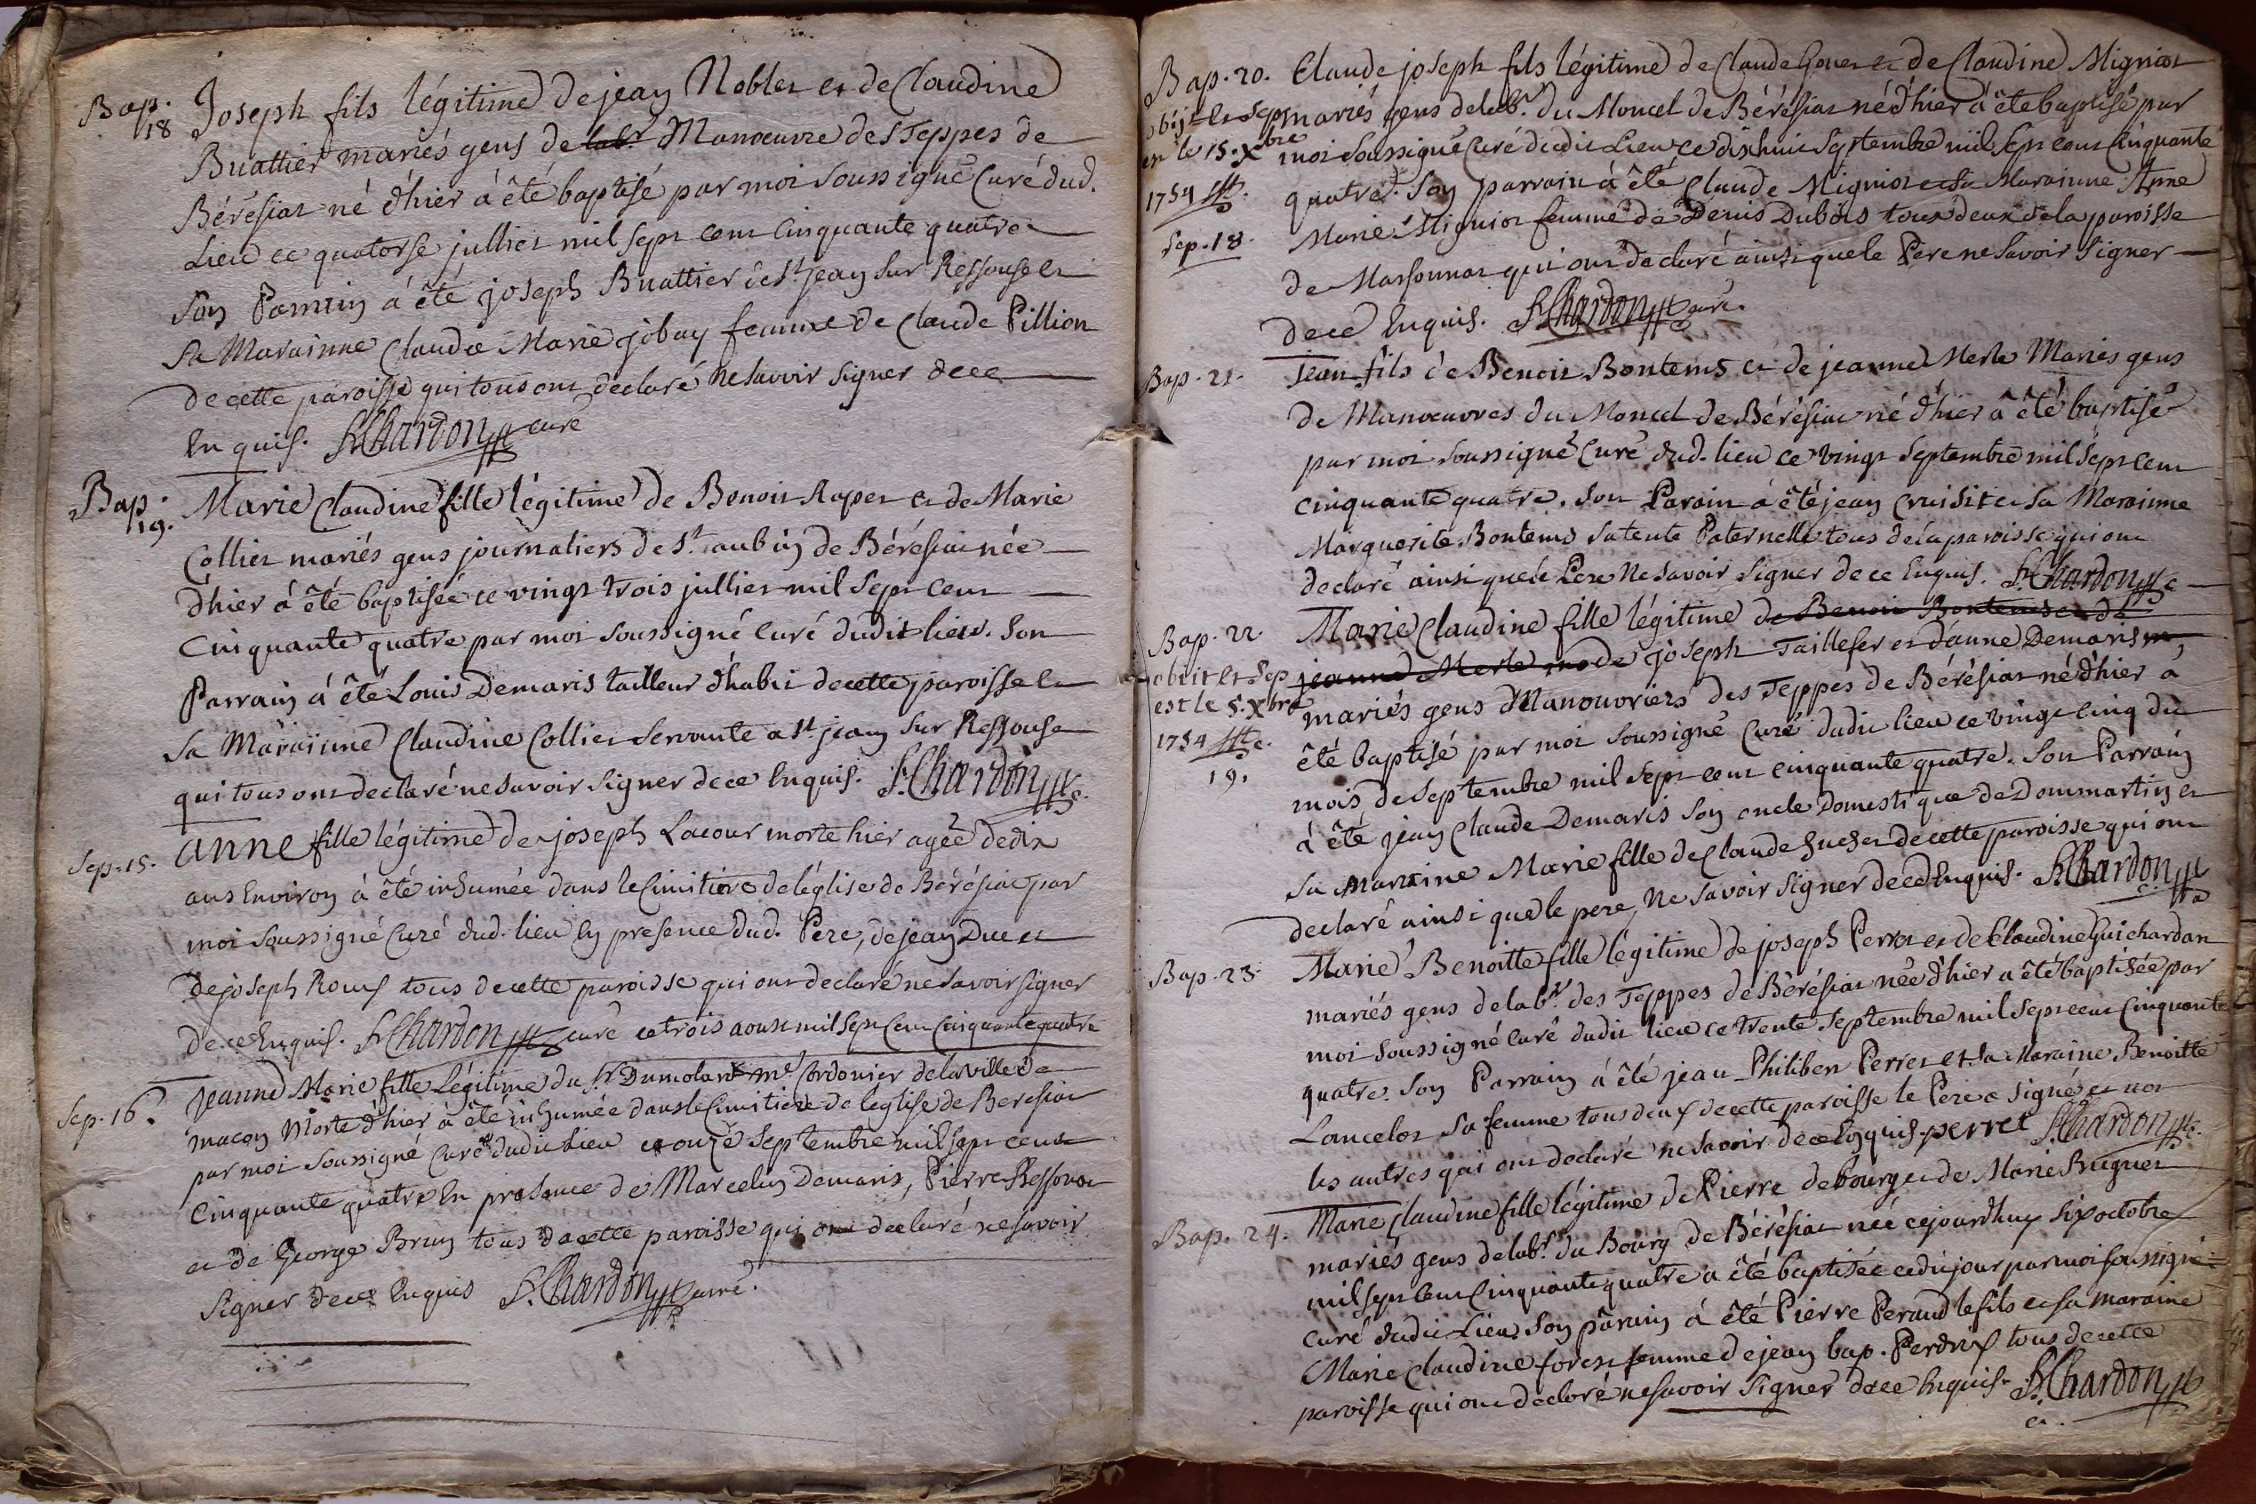 Bap.
18
Joseph fils légitime de jean Noblet et de Claudine
Buattier mariés gens de labr Manoeuvre des Teppes de
Bérésiat né d'hier à été baptisé par moi soussigné Curé dud.
Lieu ce quatorse jullier mil sept cent cinquante quatre
Son Parrain à été joseph Buattier de St jean sur Ressouse et
Sa Marainne Claudce Marie jobay femme de Claude Pillion
de cette paroisse qui tous ont déclaré ne savoir signer de ce
Enquis. F. Chardon curé
Bap.
19.
Marie Claudine fille légitime de Benoit Rapet et de Marie
Collier mariés gens journaliers de St aubin de Béréziat née
d'hier à été baptisée ce vingt trois jullier mil sept cent
Cinquante quatre par moi soussigné Curé dudit lieu. Son
Parrain à été Louis Demaris tailleur d'habit de cette paroisse et
Sa Marainne Claudine Collier servante a St jean sur Ressouse
qui tous ont declaré ne savoir signer de ce Enquis. F. Chardon c.
Sep. 15.
Anne fille légitime de joseph Lacour morte hier agée de dix
ans Environ à été inhumée dans le Cimitière de l'église de Bérésiat par
moi soussigné Curé dud. lieu En presence dud. Pere, de jean Duc et
de joseph Roux tous de cette paroisse qui ont declaré ne savoir signer
de ce Enquis. F. Chardon curé ce trois aoust mil sept Cent Cinquante quatre
Sep. 16.
Jeanne Marie fille Légitime du Sr Dumolard me Cordonier de la ville de
macon Morte d'hier à été inhumée dans le Cimitiere de l'eglise de Beresiat
par moi soussigné Curé dudit lieu ce onze septembre mil sept cent
Cinquante quatre En presence de Marcelin Demaris, Pierre Ressovoi
et de George Brun tous de cette paroisse qui ont declaré ne savoir
signer de ce Enquis F. Chardon curé.
Bap. 20.
obijt et sep
est le 15. Xbre
1754
Sep. 18.
Claude joseph fils légitime de Claude Gonet et de Claudine Migniot
mariés gens de labr. du Moncel de Bérésiat né d'hier à été baptisé par
moi soussigné Curé dudit Lieu ce dixhuit septembre mil sept cent cinquante
quatre. Son parrain à été Claude Migniot et sa Marainne Anne
Marie Migniot femme de Denis Dubois tous deux de la paroisse
de Marsonnas qui ont declaré ainsi que le Pere ne savoir signer
de ce Enquis. F. Chardon curé.
Bap. 21.
Jean fils de Benoit Bontems et de jeanne Merle Mariés gens
de Manoeuvres du Moncel de Bérésiat né d'hier à été baptisé
par moi soussigné Curé dud. lieu ce vingt septembre mil sept cent
cinquante quatre. son Parain à été jean Cruisit et sa Marainne
Marguerite Bontems sa tente Paternelle tous de la paroisse qui ont
declaré ainsi que le Pere Ne savoir signer de ce Enquis. F. Chardon c
Bap. 22.
obiit et Sep
est le 5. Xbre
1754
19.
Marie Claudine fille légitime de Benoit Bontems et de
jeanne Merle ma de joseph Taillefer et d'anne Demaris m
mariés gens Manouvriers des Teppes de Bérésiat né d'hier à
été baptisé par moi soussigné Curé dudit lieu ce vingt cinq du
mois de septembre mil sept cent cinquante quatre. Son Parrain
à été jean Claude Demaris son oncle Domestique de Dommartin et
sa maraine Marie fille de Claude Suchet de cette paroisse qui ont
declaré ainsi que le pere, Ne savoir signer de ce Enquis. F. Chardon
Bap. 23.
Marie Benoitte fille légitime de joseph Perret et de Claudine Guichardan
mariés gens de labr. des Teppes de Bérésiat née d'hier a été baptisée par
moi soussigné curé dudit lieu ce trente septembre mil sept cent cinquante
quatre. Son Parrain à été jean Philibert Perret et sa Maraine Benoitte
Lancelot sa femme tous deux de cette paroisse le Pere a signé et non
les autres qui ont declaré ne savoir de ce Enquis. perret F. Chardon c.
Bap. 24.
Marie Claudine fille légitime de Pierre debourg et de Marie Bruguet
mariés gens de labr. du Bourg de Bérésiat née cejourdhuy six octobre
mil sept cent Cinquante quatre a été baptisée cedit jour par moi soussigné
curé dudit Lieu. Son pârain à été Pierre Peraud le fils et sa maraine
Marie Claudine forest femme de jean bap. Perdrix tous de cette
paroisse qui ont declaré ne savoir signer de ce Enquis. F. Chardon
c.